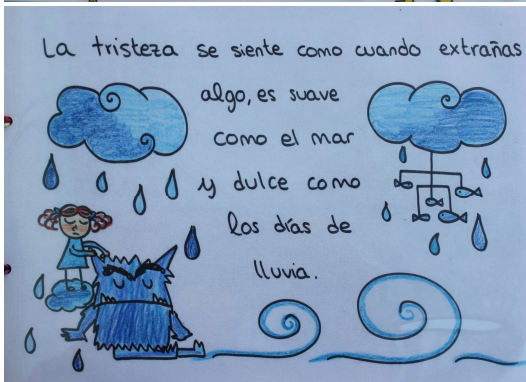 La tristeza se siente como cuando extrañas
algo, es suave
como el mar
y dulce como
los días de
lluvia.